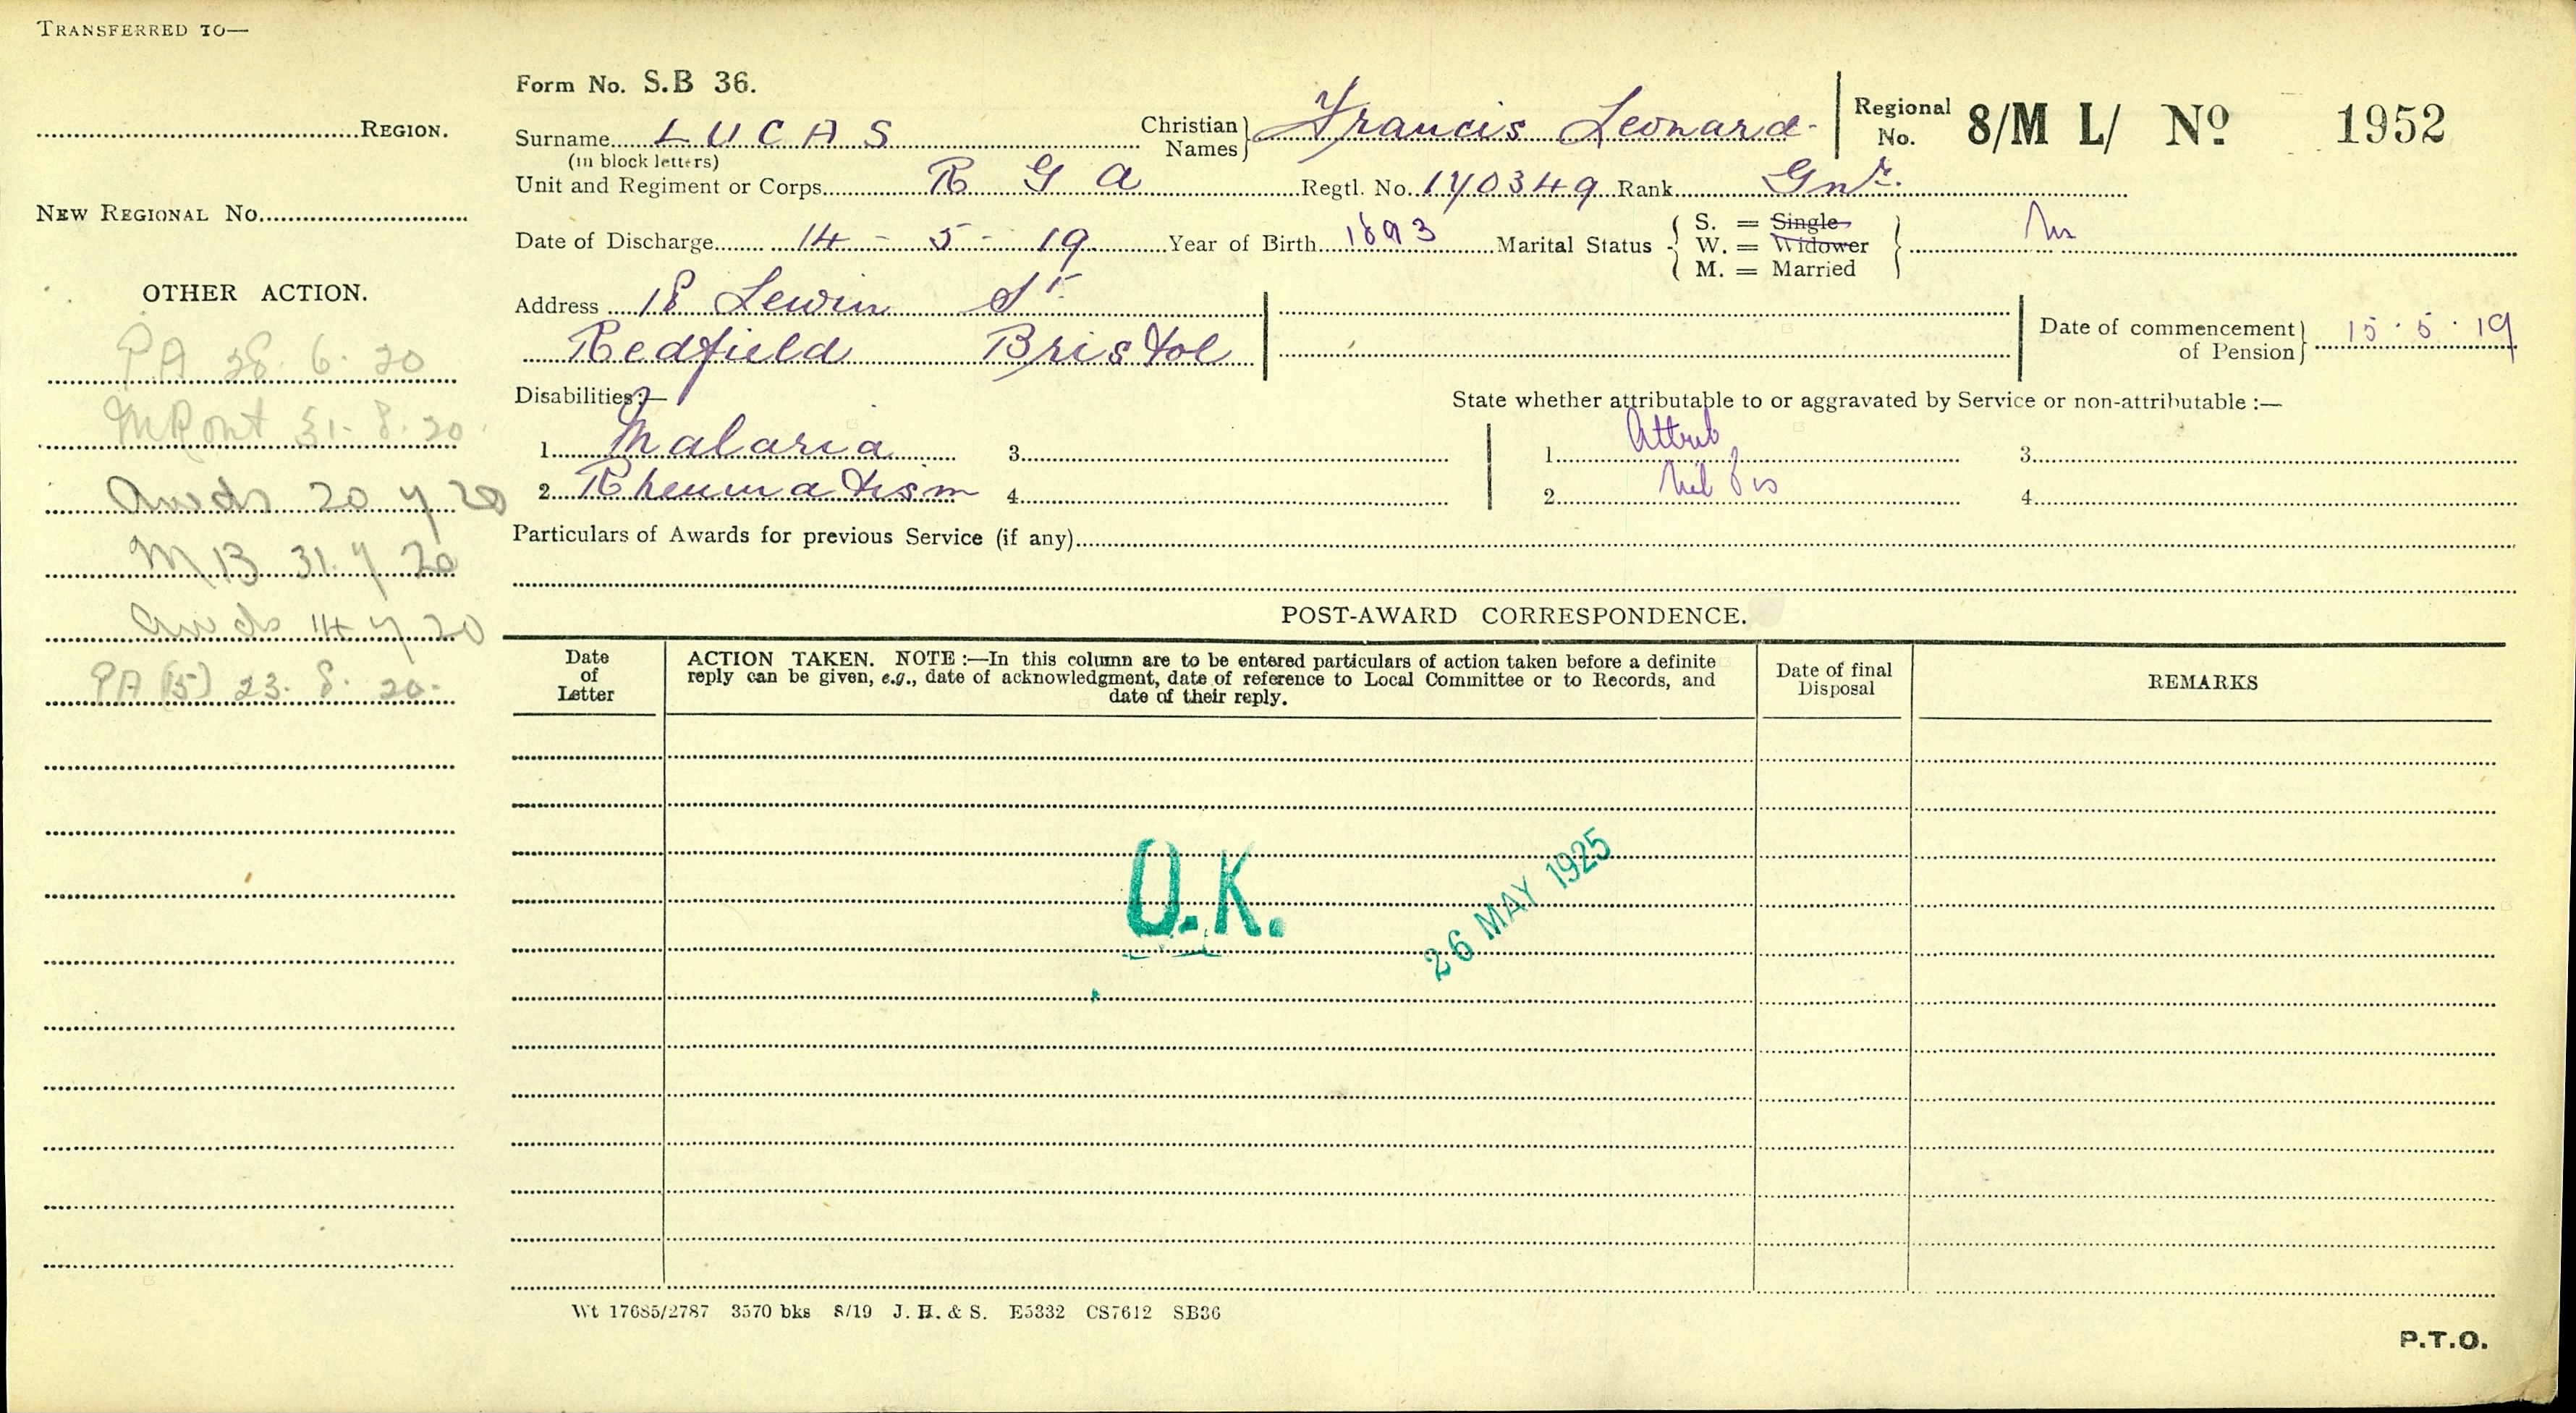 TRANSFERRED TO—
REGION.
NEW REGIONAL No.
OTHER ACTION.
PA 28. 6. 20
31. 8. 20
Awds 20 7 20
MB 31. 7 20
Awds 14 7 20
PA (15) 23. 8. 20.
Form No. S.B 36.
Surname LUCAS Christian Names} Francis Leonard
(in block letters)
Regional No. 8/M L/ No 1952
Unit and Regiment or Corps R G A Regtl. No. 170349 Rank Gnr.
Date of Discharge 14 - 5 - 19 Year of Birth 1893 Marital Status { S. = Single
W. = Widower
M. = Married } M
Address 18 Lewin St
Redfield Bristol
Date of commencement of Pension} 15. 5. 19
Disabilities:— State whether attributable to or aggravated by Service or non-attributable :—
1. Malaria 3. 1. Attrib 3.
2. Rheumatism 4. 2. Nil Dis 4.
Particulars of Awards for previous Service (if any)
POST-AWARD CORRESPONDENCE.
Date of Letter
ACTION TAKEN. NOTE :—In this column are to be entered particulars of action taken before a definite
reply can be given, e.g., date of acknowledgment, date of reference to Local Committee or to Records, and
date of their reply.
Date of final Disposal
REMARKS
O.K.
26 MAY 1925
Wt 17685/2787 3570 bks 8/19 J. H. & S. E5332 CS7612 SB36
P.T.O.